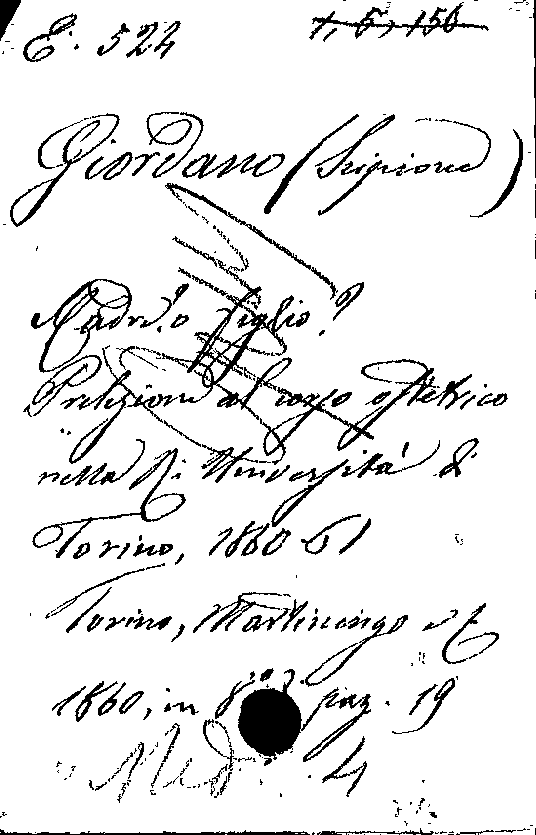 E. 524 7, 5, 156
Giordano (Scipione)
Madre o figlio?
Prelezione al corso ostetrico
nella R. Università di
Torino, 1860-61
Torino, Martinengo e C
1860, in 8° paz. 19
Med. 4